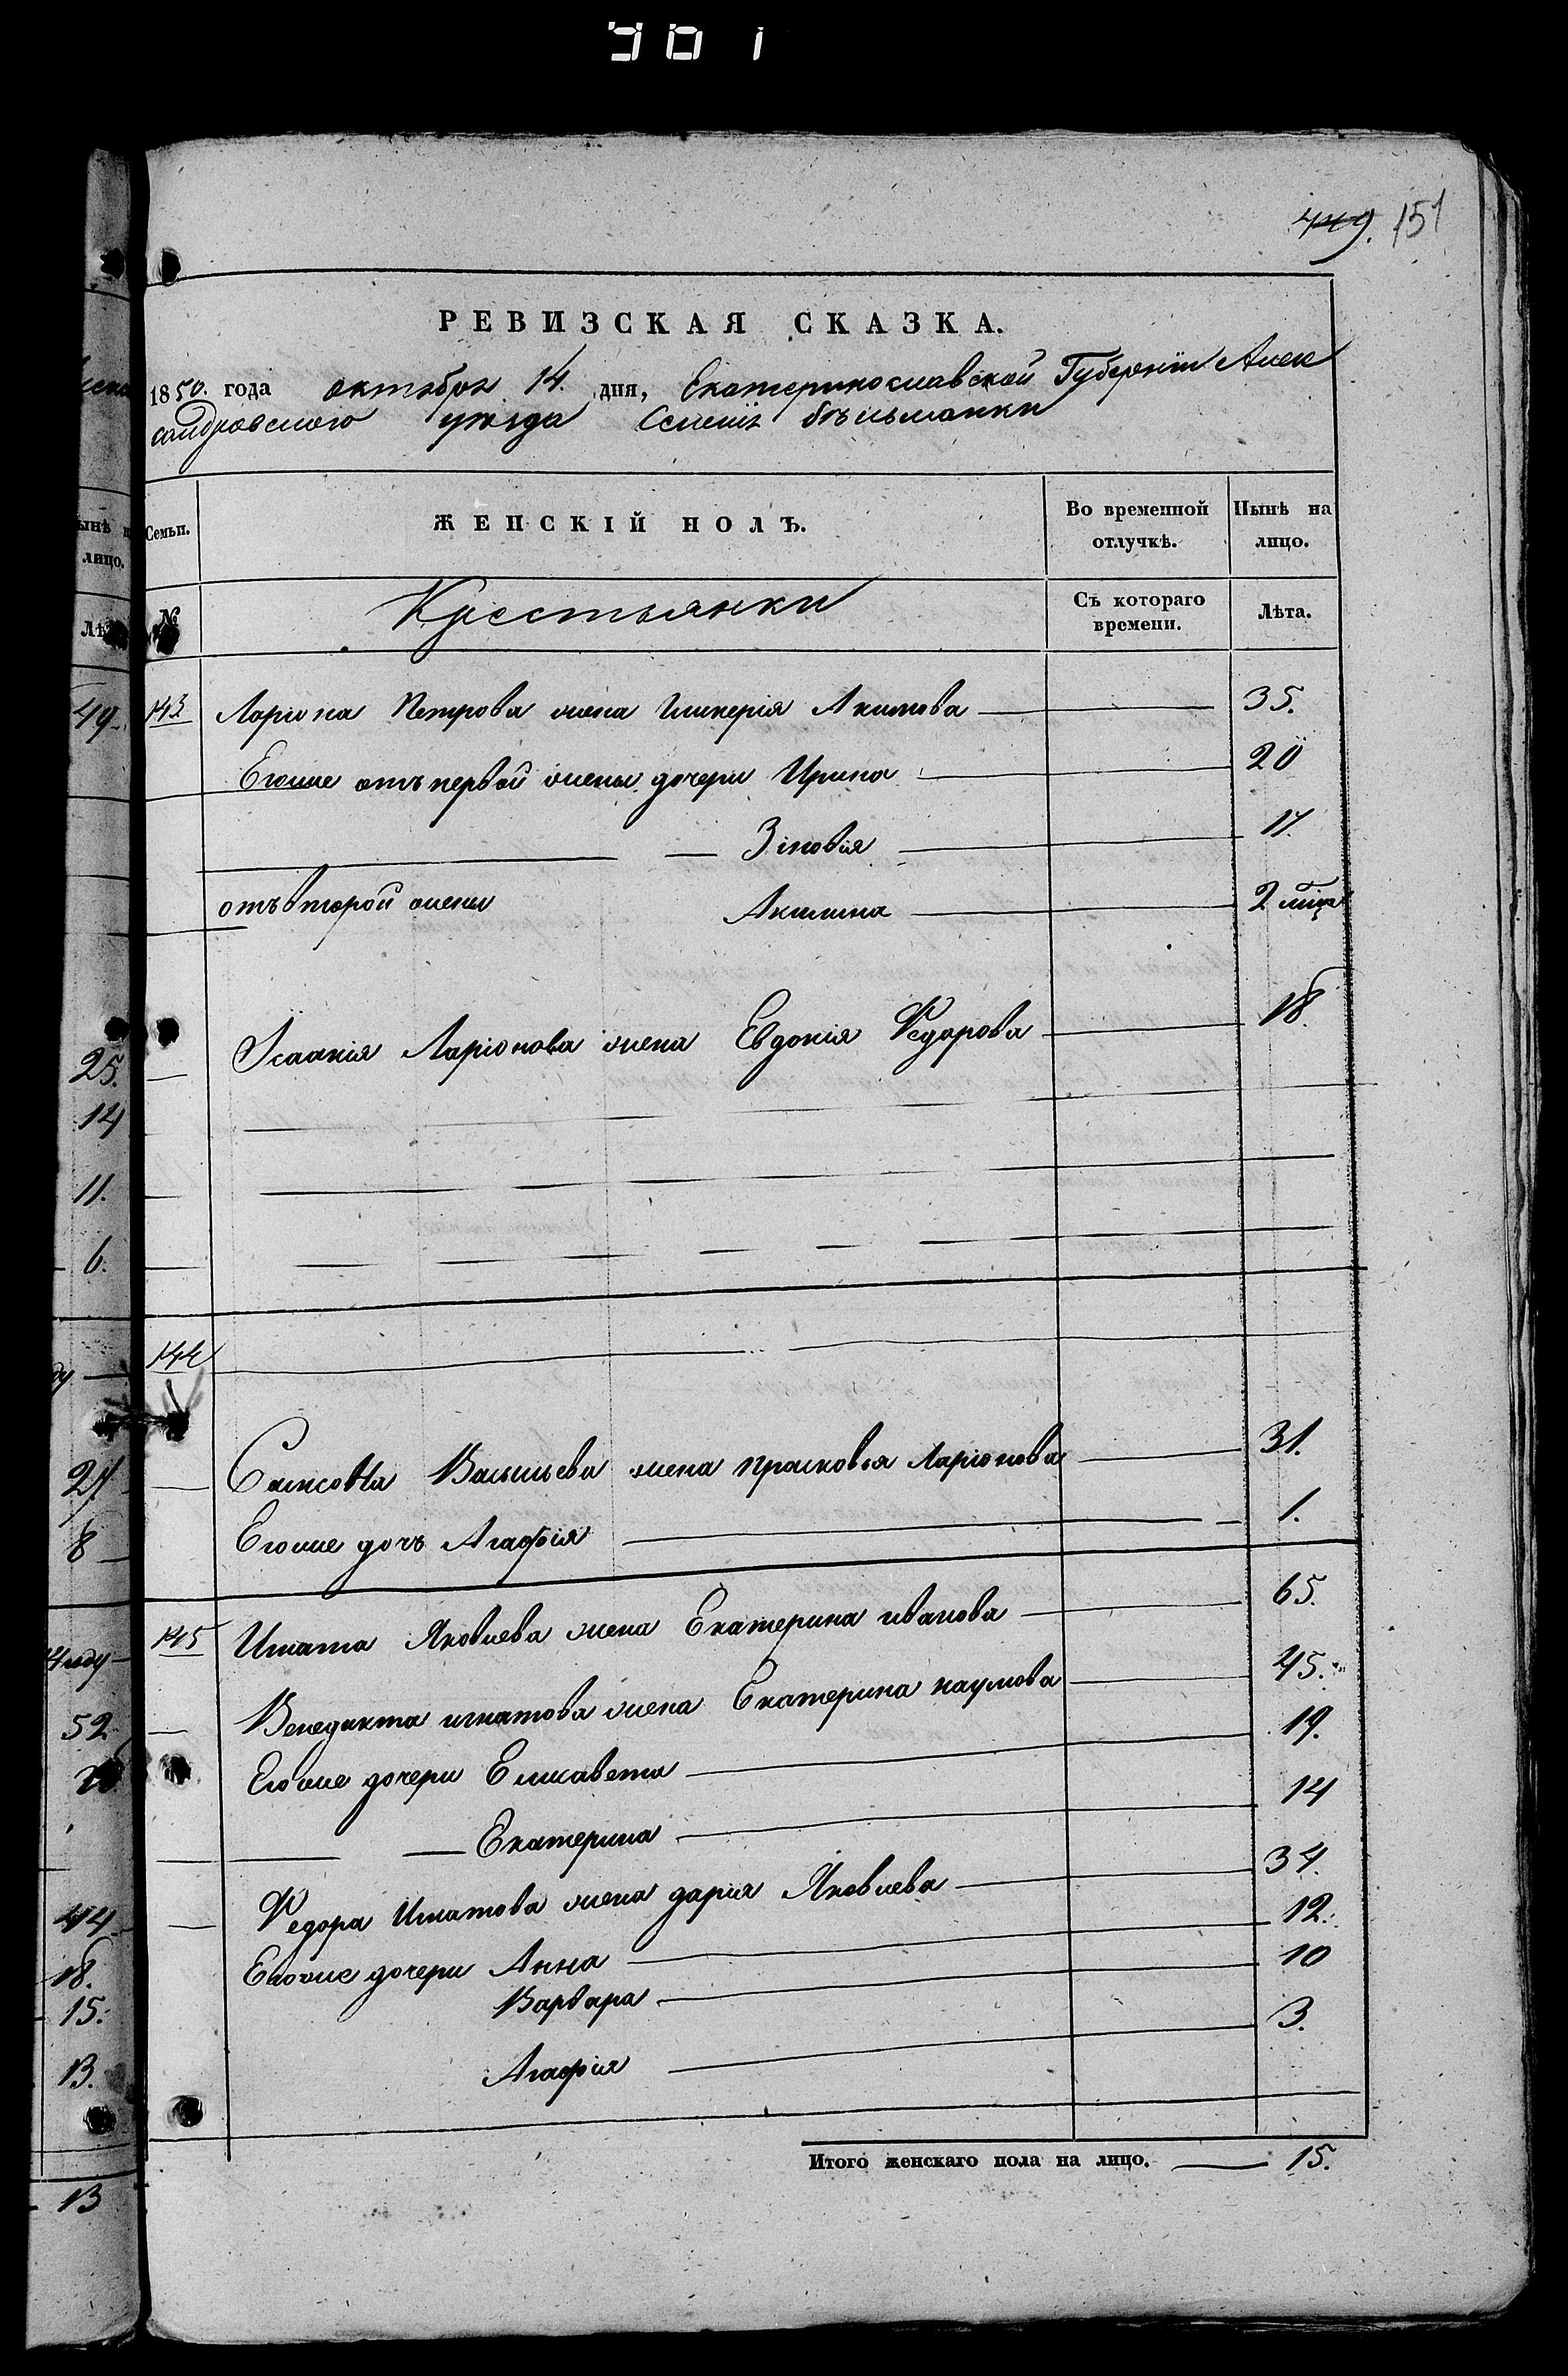 449. 151
РЕВИЗСКАЯ СКАЗКА.
1850. года октября 14. дня, Екатеринославской Губерніи Алек
сандровского уѣзда Селенія бѣльманки
Семьи. ЖЕНСКІЙ ПОЛЪ. Во временной отлучкѣ. Нынѣ на лицо.
№ Крестьянки Съ котораго времени. Лѣта.
143 Лариона Петрова жена Гликерія Акимова 35.
Егоже отъ первой жены дочери Ирина 20
Зіновія 17.
отъ второй жены Акилина 2 мѣца
Ісаакія Ларіонова жена Евдокія Федорова 18.
144
Сампсона Васильева жена прасковья Ларіонова 31.
Егоже дочь Агафія 1.
145 Игната Яковлева жена Екатерина иванова 65.
Венедикта игнатова жена Екатерина наумова 45.
Егоже дочери Елисавета 19.
Екатерина 14
Федора Игнатова жена дарія Яковлева 34.
Егоже дочери Анна 12.
Варвара 10
Агафія 3.
Итого женскаго пола на лицо. 15.